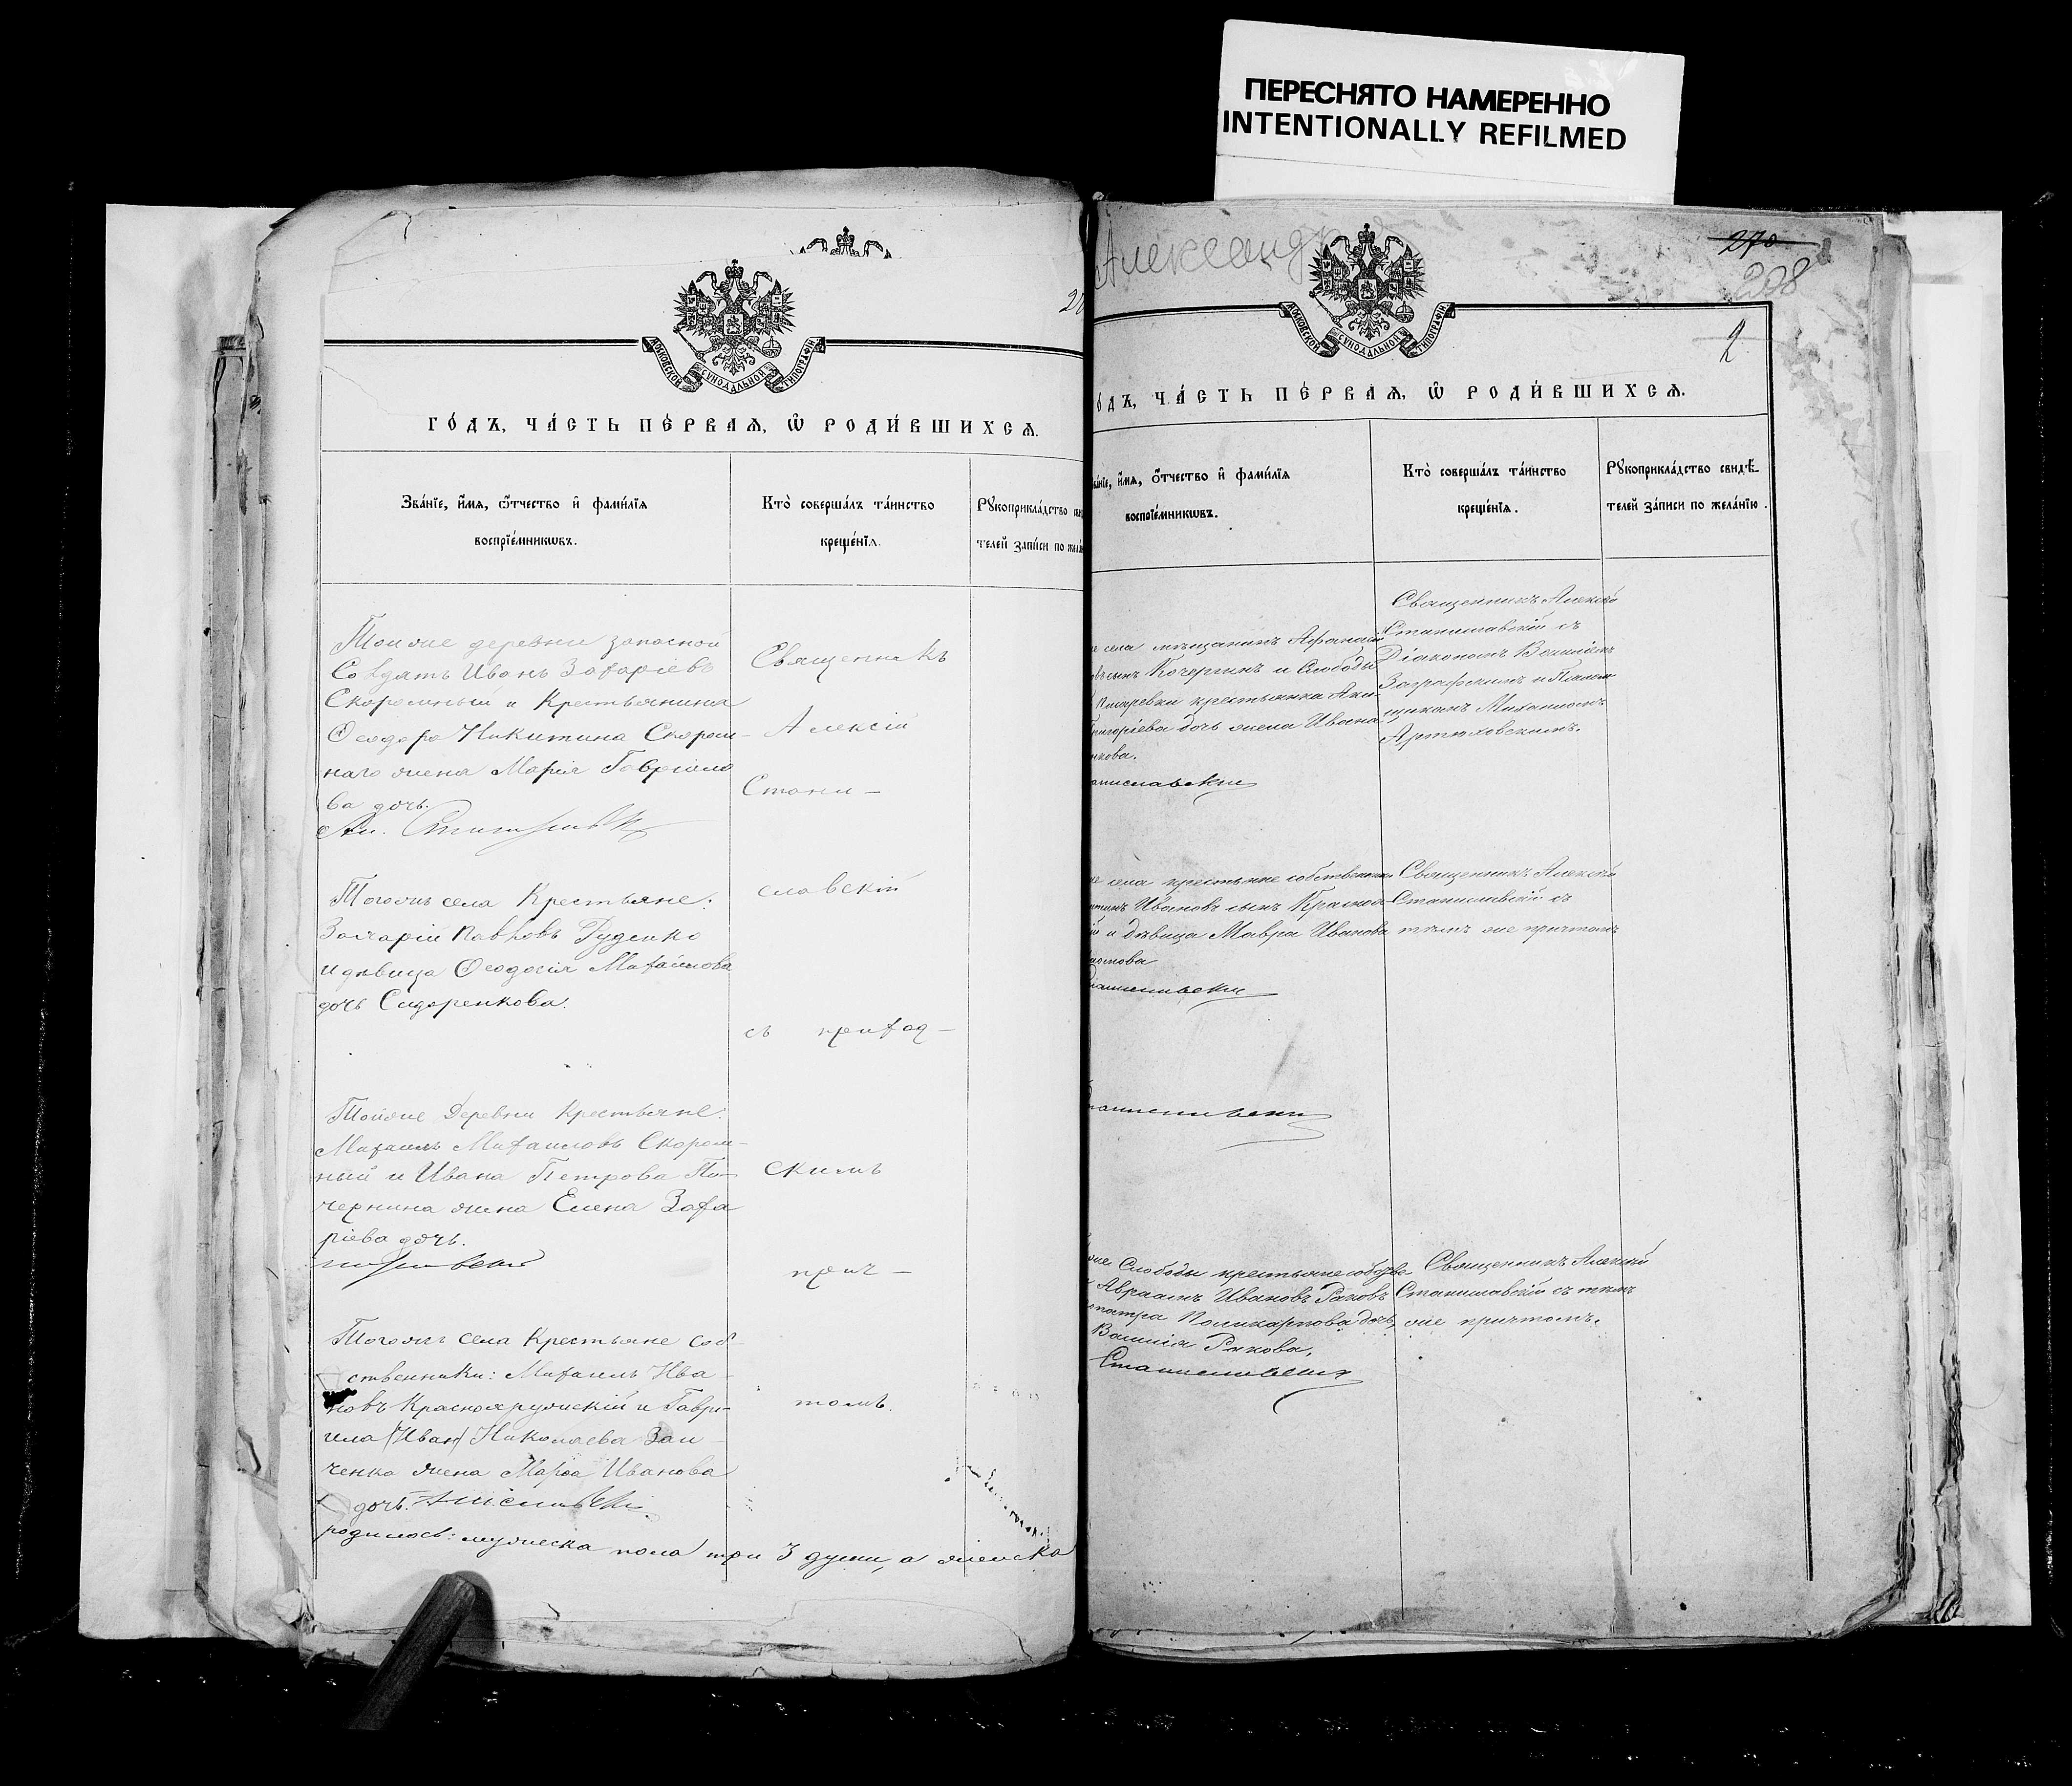 ПЕРЕСНЯТО НАМЕРЕННО
INTENTIONALLY REFILMED
МОСКОВСКОЙ СѴНОДАЛЬНОЙ ТИПОГРАФІИ
ГО́ДЪ, ЧА́СТЬ ПЕ́РВАѦ, Ѽ РОДИ́ВШИХСѦ.
Зва́нїе, и҆́мѧ, ѻ҆́тчество и҆ фами́лїѧ
воспрїе́мникѡвъ.
Кто̀ соверша́лъ та́инство
креще́нїѧ.
Рꙋкоприкла́дство
телей за́писи по
Тойже деревни запасной
Солдатъ Иванъ Захаріевъ
Скоромный и Крестьянина
Ѳеодора Никитина Скором-
наго жена Марія Гавріило
ва дочь.
Тогожъ села Крестьяне:
Захарій Павловъ Руденко
и девица Ѳеодосія Михайлова
дочь Сидоренкова.
Тойже Деревни Крестьяне:
Михаилъ Михаиловъ Скором-
ный и Ивана Петрова По-
чернина жена Елена Заха
ріева дочь.
Тогожъ села Крестьяне соб-
ственники: Михаилъ Ива
новъ Краснояружскій и Гаври-
ила (Иван) Николаева Заи
ченка жена Марѳа Иванова
дочь.
родилось: мужеска пола три 3 души, а женска
Священникъ
Алексій
Стани-
славскій
съ приход-
скимъ
прич-
томъ.
Александр
270
208
2
МОСКОВСКОЙ СѴНОДАЛЬНОЙ ТИПОГРАФІИ
О́ДЪ, ЧА́СТЬ ПЕ́РВАѦ, Ѽ РОДИ́ВШИХСѦ.
и҆́мѧ, ѻ҆́тчество и҆ фами́лїѧ
воспрїе́мникѡвъ.
Кто̀ соверша́лъ та́инство
креще́нїѧ.
Рꙋкоприкла́дство свидѣ́-
телей за́писи по жела́нїю.
села мѣщанинъ Афанасій
сынъ Кочергинъ и Слободы
Писаревки крестьянка
дочь жена Ивана
Священникъ Алексій
Станиславскій съ
Діакономъ Василіемъ
Заграфскимъ и Псалом
щикомъ Михаиломъ
Артюховскимъ.
села крестьяне собственники
Ивановъ сынъ Красно
и девица Мавра Иванова
Священникъ Алексій
Станиславскій съ
темъ же причтомъ
Слободы крестьяне
Авраамъ Ивановъ Раковъ
Поликарпова дочь,
Василія Ракова.
Священникъ Алексій
Станиславскій съ темъ
же причтомъ.